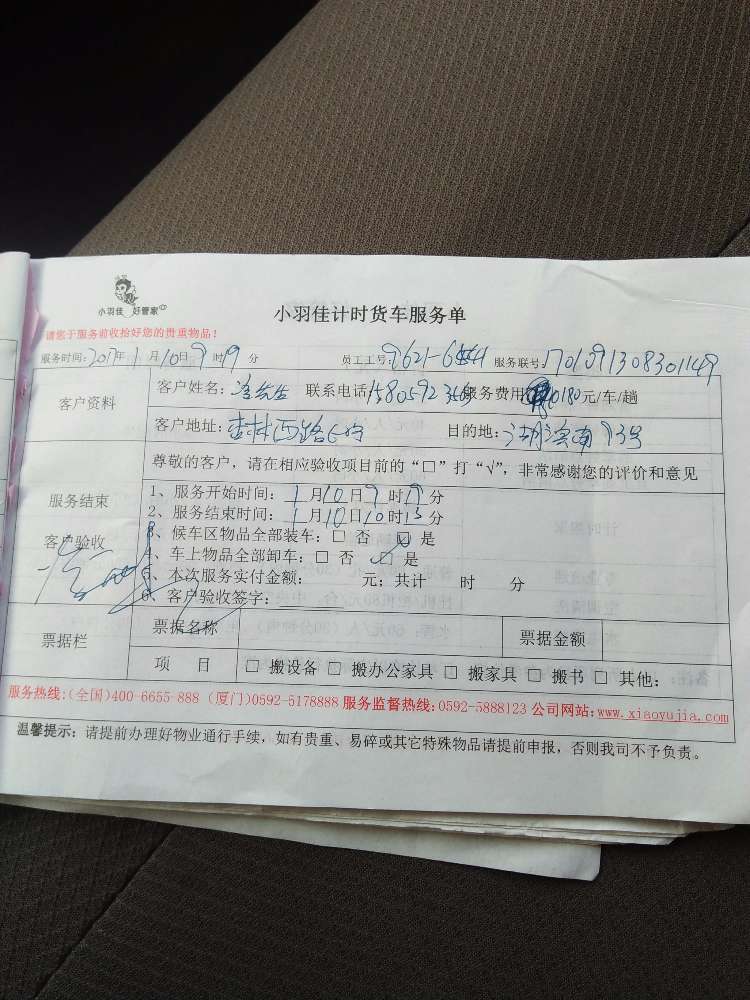 小羽佳 好管家
小羽佳计时货车服务单
请您于服务前收拾好您的贵重物品！
服务时间：2017年1月10日9时19分 员工工号：9621-6 服务联号：1701091308301149
客户资料
客户姓名： 先生 联系电话 服务费用 180元/车/趟
客户地址：杏林西路 目的地：湖滨南 号
尊敬的客户，请在相应验收项目前的“□”打“√”，非常感谢您的评价和意见
服务结束
客户验收
1、服务开始时间：1月10日9时19分
2、服务结束时间：1月10日10时15分
3、候车区物品全部装车：□ 否 □ 是
4、车上物品全部卸车：□ 否 □ 是
5、本次服务实付金额： 元；共计 时 分
6、客户验收签字：
票据栏
票据名称 票据金额
项 目 □ 搬设备 □ 搬办公家具 □ 搬家具 □ 搬书 □ 其他：
服务热线：(全国)400-6655-888 (厦门)0592-5178888 服务监督热线：0592-5888123 公司网站：www.xiaoyujia.com
温馨提示：请提前办理好物业通行手续，如有贵重、易碎或其它特殊物品请提前申报，否则我司不予负责。